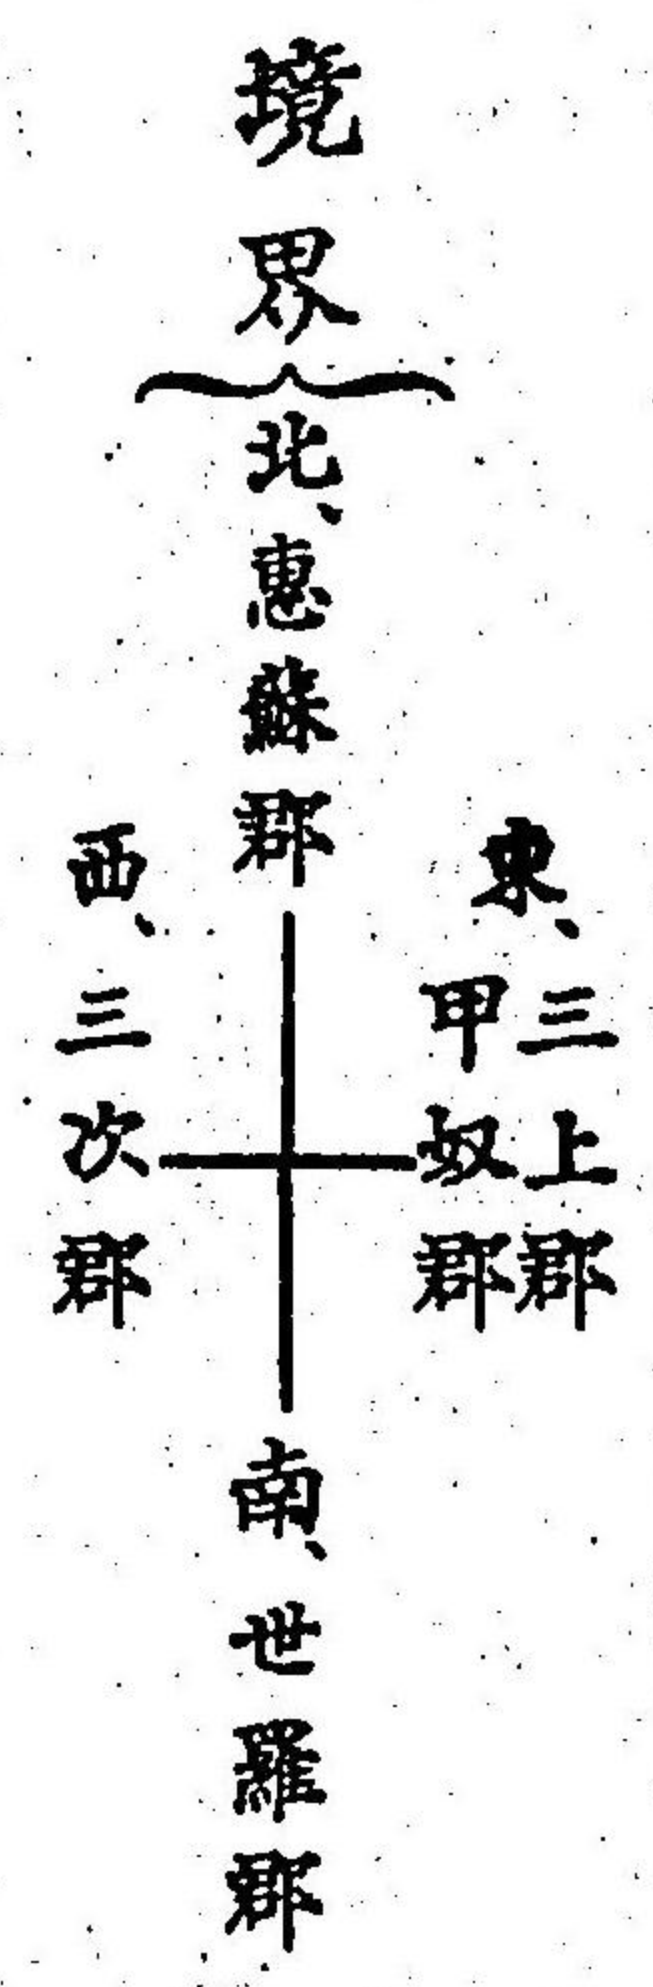 境界
北、惠蘇郡
東、三上郡
甲奴郡
西、三次郡
南、世羅郡